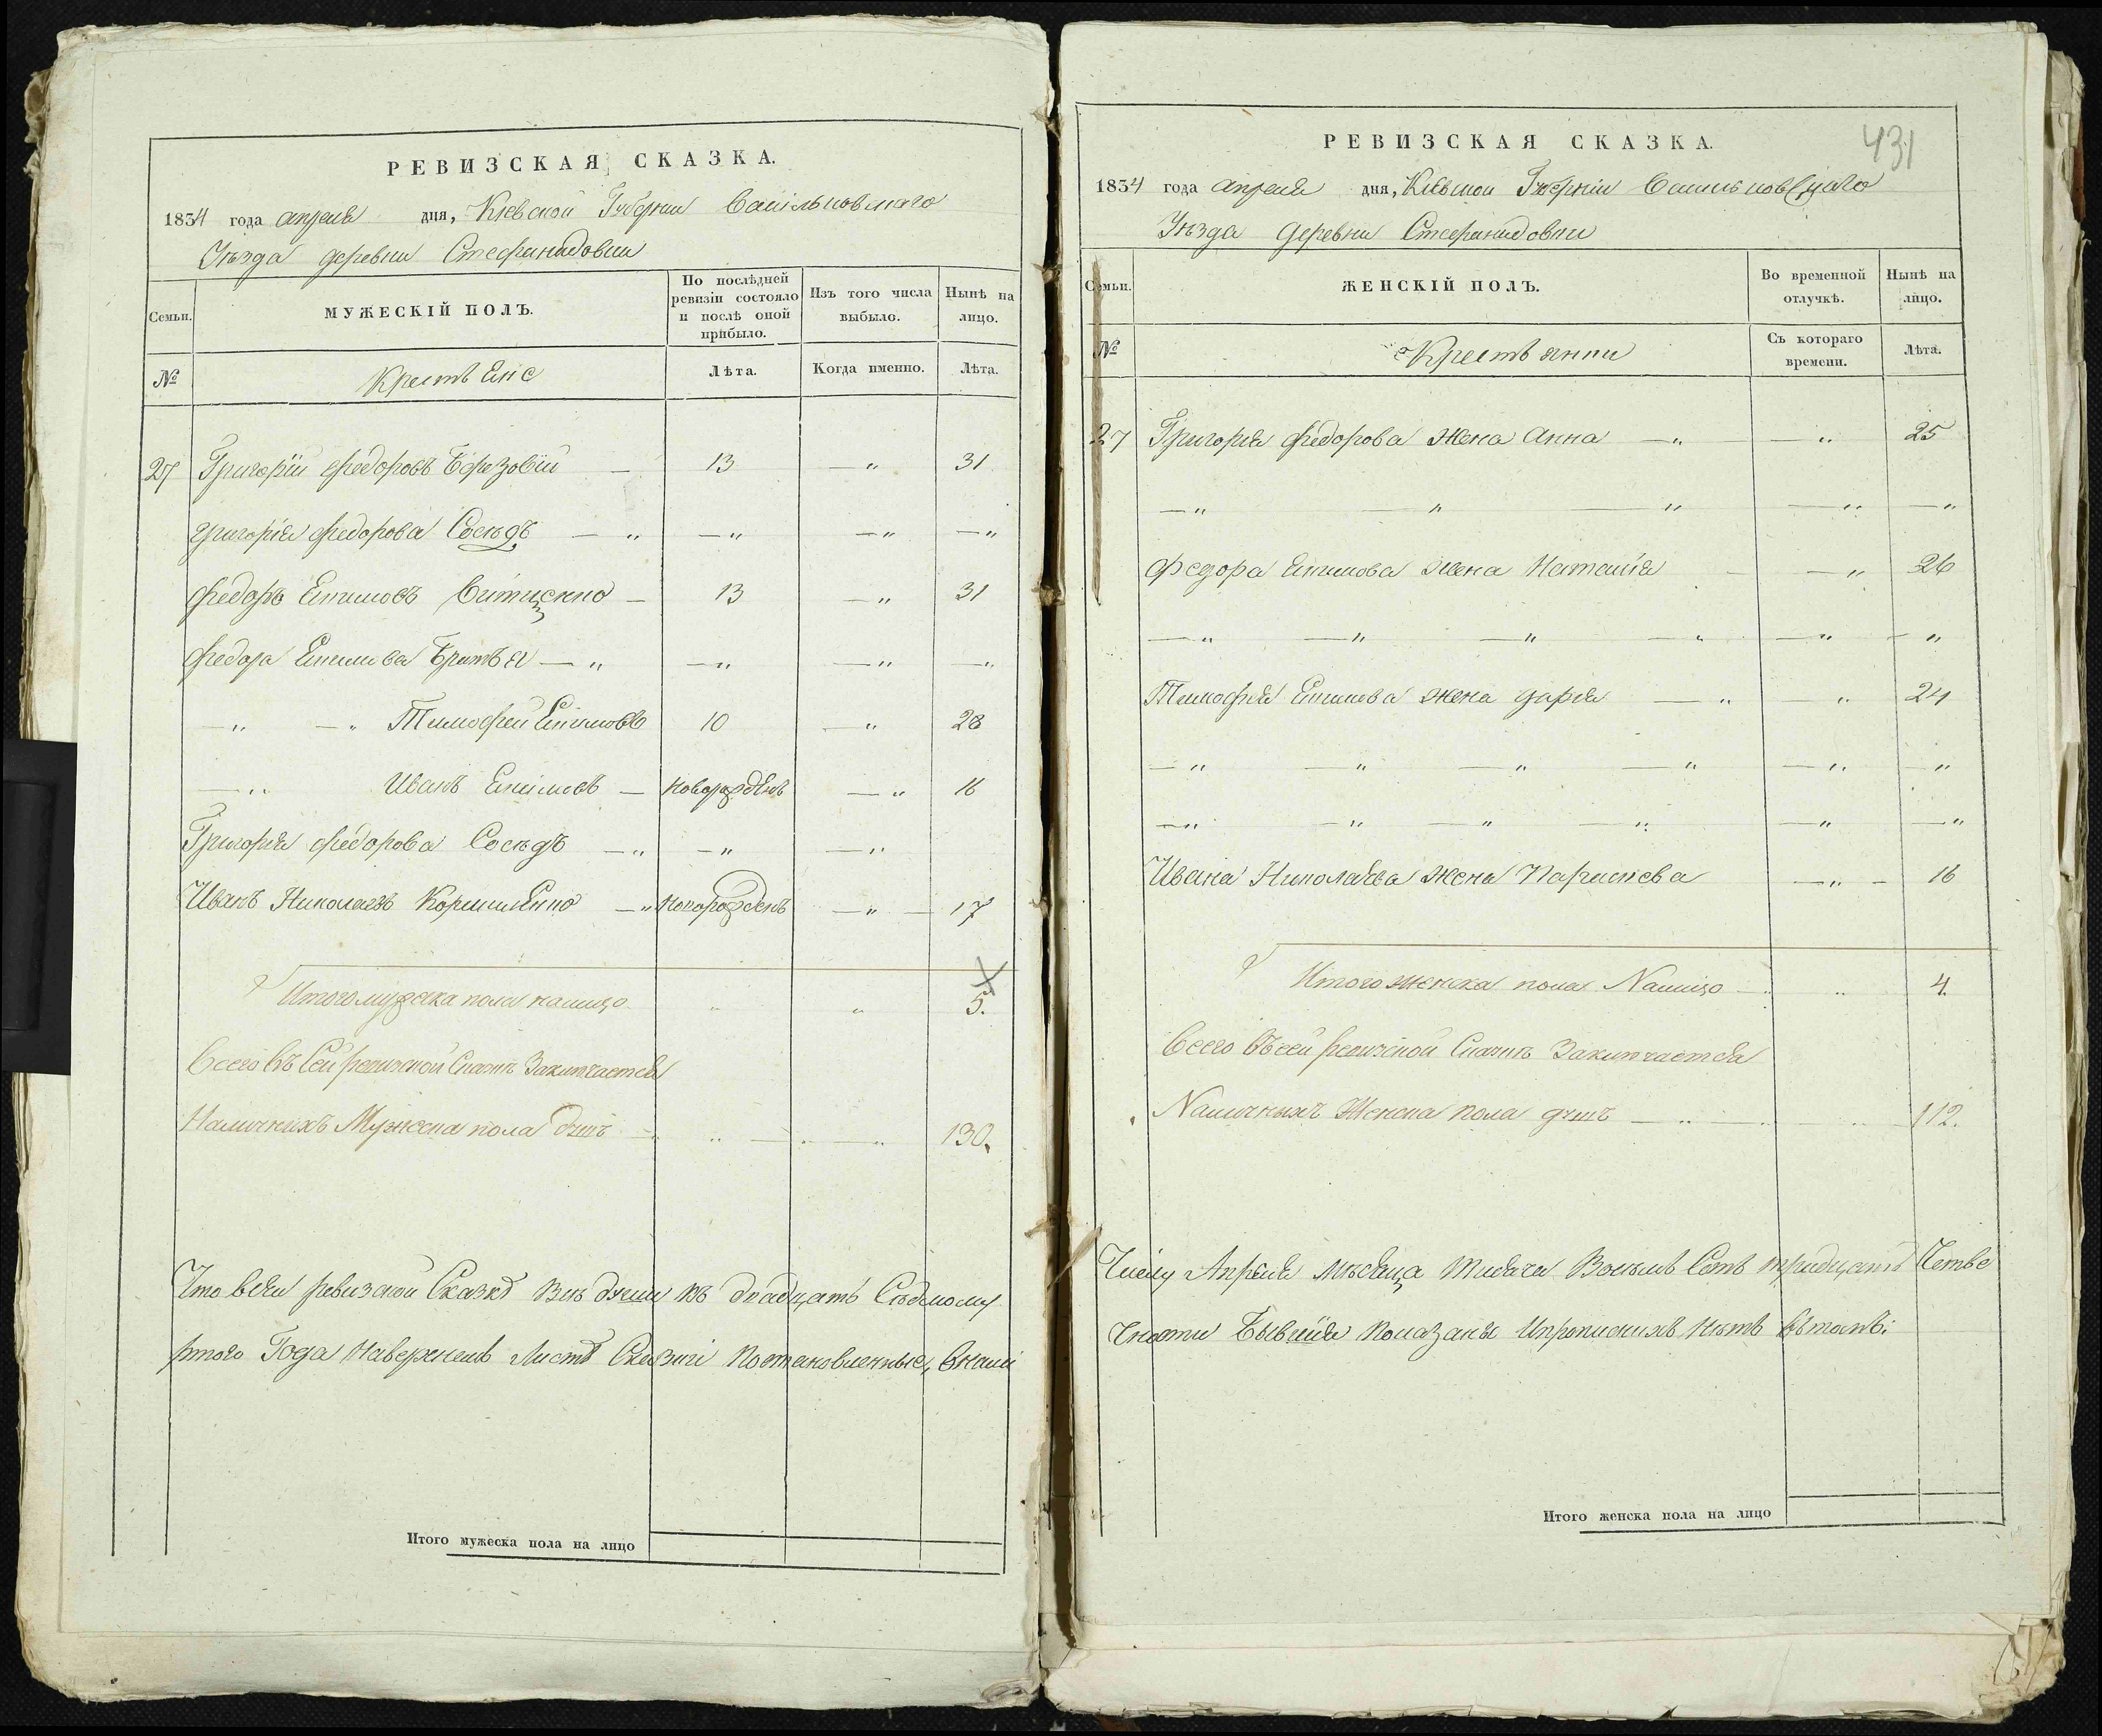 РЕВИЗСКАЯ СКАЗКА.
1834 года апреля дня, Кіевской Губерніи Васильковскаго
Уѣзда деревни Стефанидовки
Семьи.
МУЖЕСКІЙ ПОЛЪ.
По послѣдней ревизіи состояло и послѣ оной прибыло.
Изъ того числа выбыло.
Нынѣ на лицо.
№
Крестьяне
Лѣта.
Когда именно.
Лѣта.
27 Григорій Федоровъ Березовій — 13 — " 31
Григорія Федорова Сосѣдъ — " — " — " — "
Федоръ Епимовъ — 13 — " 31
Федора Епимова Братья — " — " — " — "
— " — " Тимофей Епимовъ 10 — " 28
— " Иванъ Епимовъ — новорожденъ — " 16
Григорія Федорова Сосѣдъ — " — " — "
Иванъ Николаевъ — " новорожденъ — " — 17
Итого мужска пола налицо " " 5.
Всего въ Сей ревизской Сказкѣ Заключается
Наличнихъ Мужеска пола душъ — " — " — " 130.
Что в сей ревизской Сказкѣ Всѣ души къ двадцать Седмому
ртого Года
Итого мужеска пола на лицо
РЕВИЗСКАЯ СКАЗКА.
431
1834 года апреля дня, Кіевской Губерніи Васильковскаго
Уѣзда деревни Стефанидовки
Семьи.
ЖЕНСКІЙ ПОЛЪ.
Во временной отлучкѣ.
Нынѣ на лицо.
№
Крестьянки
Съ котораго времени.
Лѣта.
27 Григорія Федорова Жена Анна — " — " 25
— " — " — " — " — "
Федора Епимова Жена Наталія — — " 26
— " — " — " — " — " — "
Тимофея Епимова Жена Дарія — " — " 24
— " — " — " — " — " — "
— " — " — " — " — " — "
Ивана Николаева Жена Параскева — " — 16
Итого женска пола Налицо — " " 4.
Всего Въ сей ревизской Сказкѣ Заключается
Наличныхъ Женска пола душъ — " — " — " — 112.
Числу Апреля мѣсяца тисяча Восѣмь Сотъ тридцать Четве
Бывшія показаны и прописнихъ нѣтъ
Итого женска пола на лицо